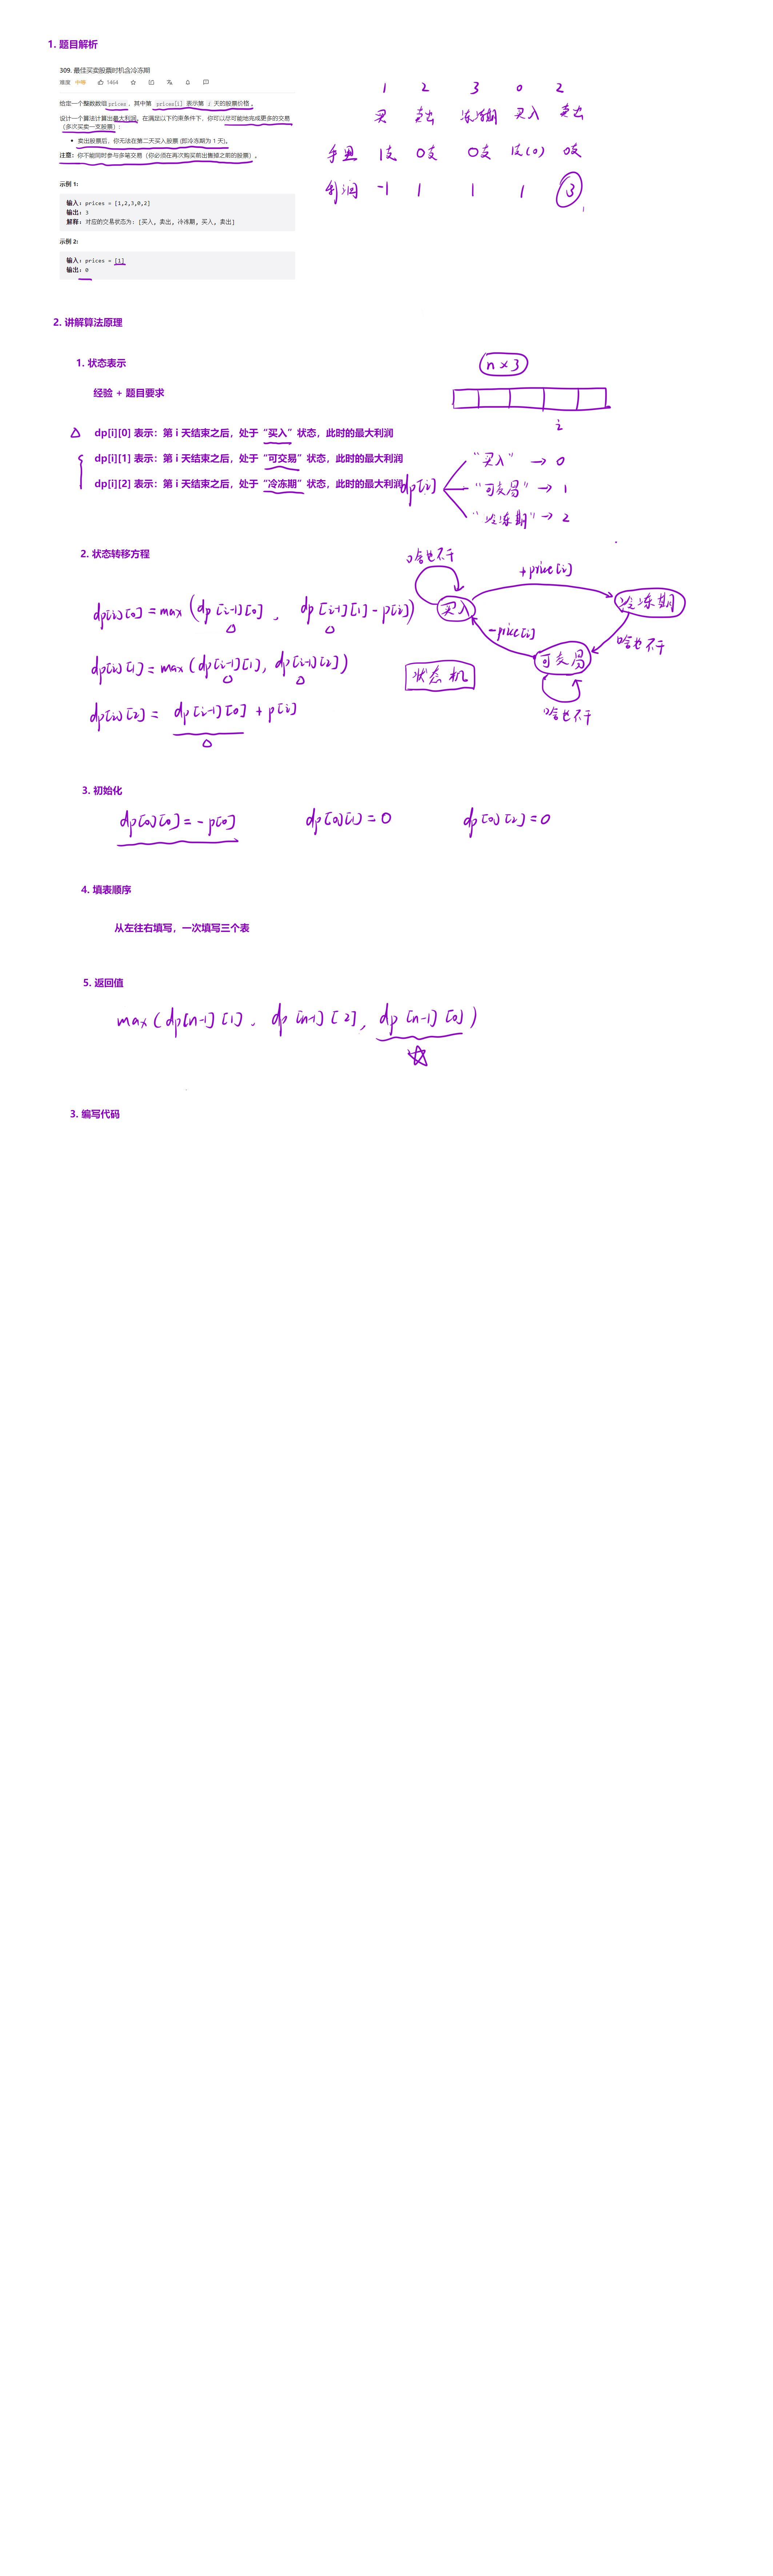 1. 题目解析
309. 最佳买卖股票时机含冷冻期
难度 中等 1464
给定一个整数数组 prices，其中第 prices[i] 表示第 i 天的股票价格 。
设计一个算法计算出最大利润。在满足以下约束条件下，你可以尽可能地完成更多的交易
（多次买卖一支股票）:
• 卖出股票后，你无法在第二天买入股票 (即冷冻期为 1 天)。
注意：你不能同时参与多笔交易（你必须在再次购买前出售掉之前的股票）。
示例 1:
输入: prices = [1,2,3,0,2]
输出: 3
解释: 对应的交易状态为: [买入, 卖出, 冷冻期, 买入, 卖出]
示例 2:
输入: prices = [1]
输出: 0
1 2 3 0 2
买 卖出 冷冻期 买入 卖出
手里 1支 0支 0支 1支(0) 0支
利润 -1 1 1 1 3
2. 讲解算法原理
1. 状态表示
经验 + 题目要求
dp[i][0] 表示：第 i 天结束之后，处于 “买入” 状态，此时的最大利润
dp[i][1] 表示：第 i 天结束之后，处于 “可交易” 状态，此时的最大利润
dp[i][2] 表示：第 i 天结束之后，处于 “冷冻期” 状态，此时的最大利润
n×3
i
dp[i]
"买入" → 0
"可交易" → 1
"冷冻期" → 2
2. 状态转移方程
dp[i][0] = max(dp[i-1][0], dp[i-1][1]-p[i])
dp[i][1] = max(dp[i-1][1], dp[i-1][2])
dp[i][2] = dp[i-1][0] + p[i]
啥也不干
买入
+price[i]
冷冻期
-price[i]
啥也不干
可交易
状态机
啥也不干
3. 初始化
dp[0][0] = -p[0] dp[0][1] = 0 dp[0][2] = 0
4. 填表顺序
从左往右填写，一次填写三个表
5. 返回值
max(dp[n-1][1], dp[n-1][2], dp[n-1][0])
3. 编写代码